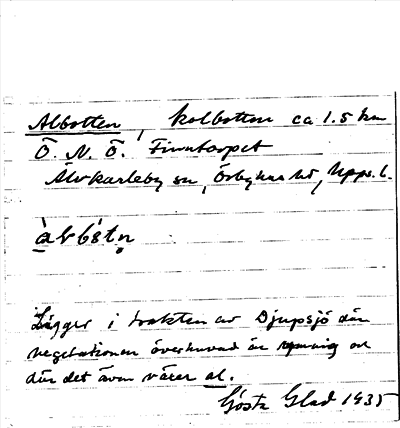 Albotten, kolbotten ca 1.5 km
Ö. N. Ö. Finntorpet
Älvkarleby sn, Örbyhus hd, Upps. l.
àlbót̥n
Ligger i trakten av Djupsjö där
vegetationen överhuvud är och
där det även växer al.
Gösta Glad 1935